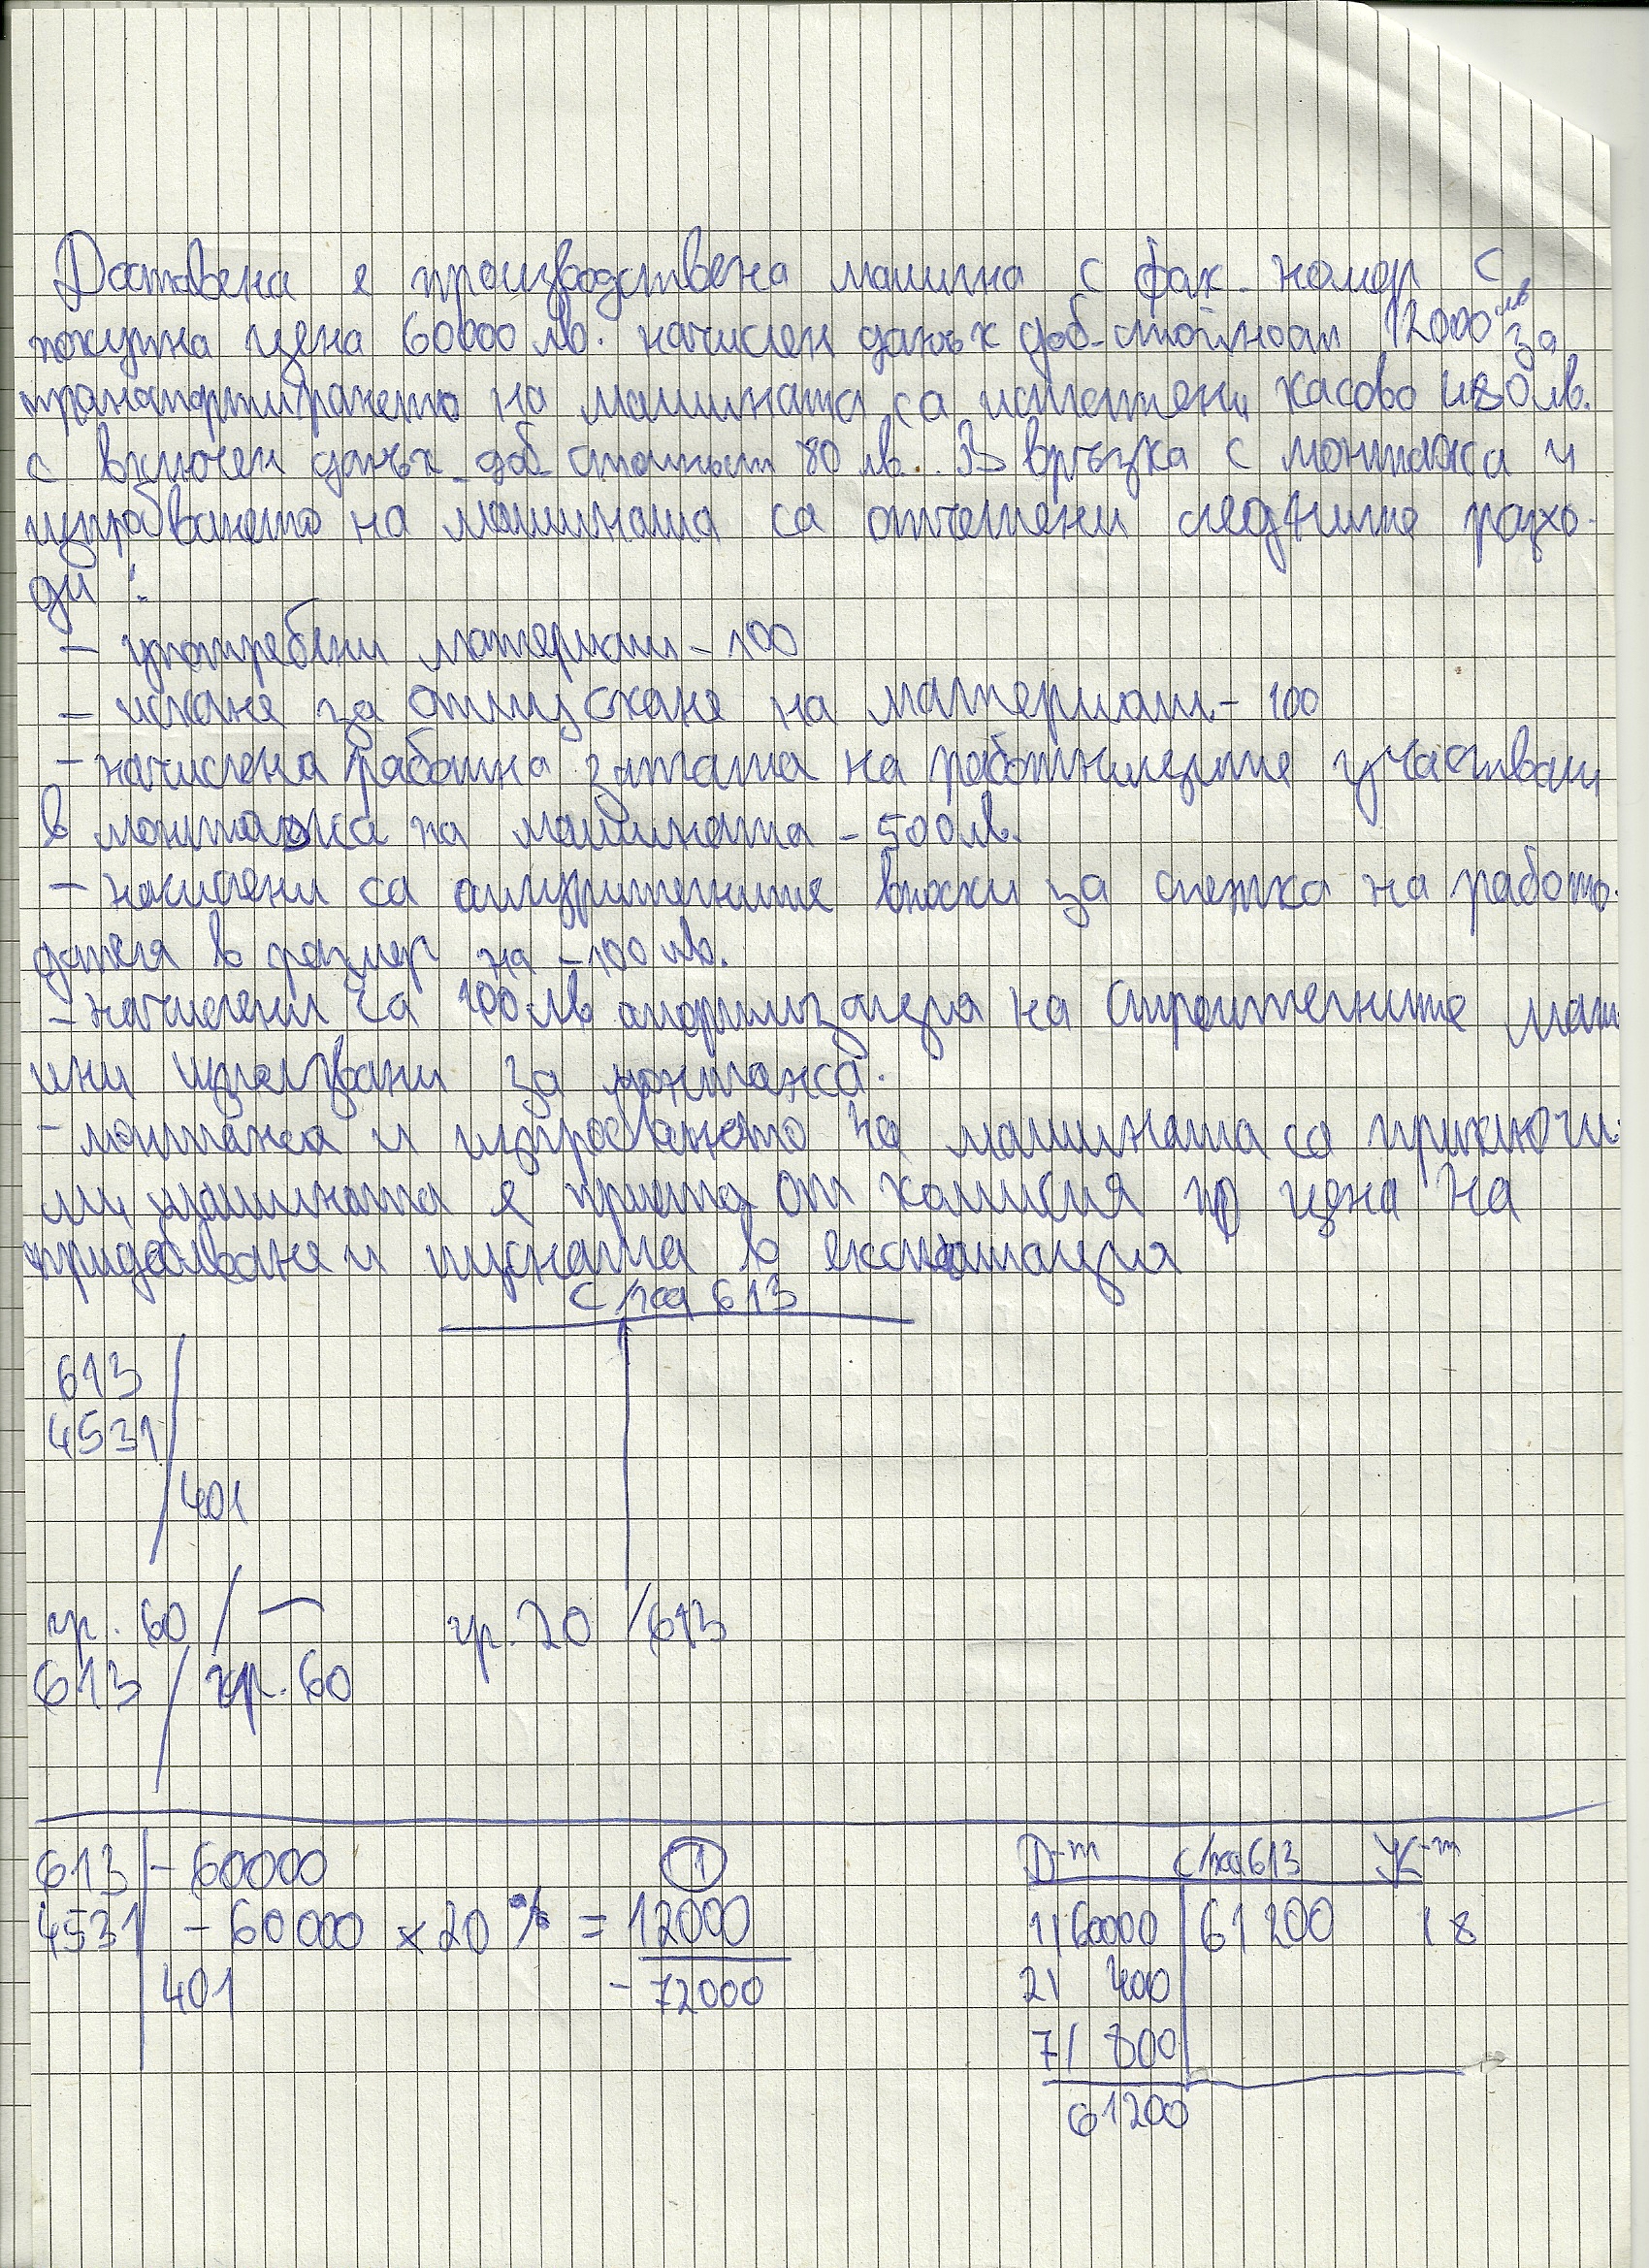 Доставена е производствена машина с фак. номер с
покупна цена 60000 лв. начислен данък доб. стойност 12000 лв за
транспортирането на машината са изплатени касово 480 лв.
с включен данък доб стойност 80 лв. В връзка с монтажа и
изпробването на машината са отчетени следните разхо-
ди :
- употребени материали - 100
- искане за отпускане на материали - 100
- начислена работна заплата на работниците участващи
в монтажа на машината - 500 лв.
- начислени са осигурителните вноски за сметка на работо-
дателя в размер на - 100 лв.
- начислени са 100 лв амортизация на строителните маш
ини използвани за монтажа.
- монтажа и изпробването на машината са приключи-
ли, машината е приета от комисия по цена на
придобиване и пусната в експлоатация
с/ка 613
613
4531
401
гр. 60 / гр. 20 / 613
613 / гр. 60
613 - 60000 1
4531 - 60000 x 20 % = 12000
401 - 72000
Д-т с/ка 613 К-т
1/ 60000 61200 18
2/ 400
7/ 800
61200